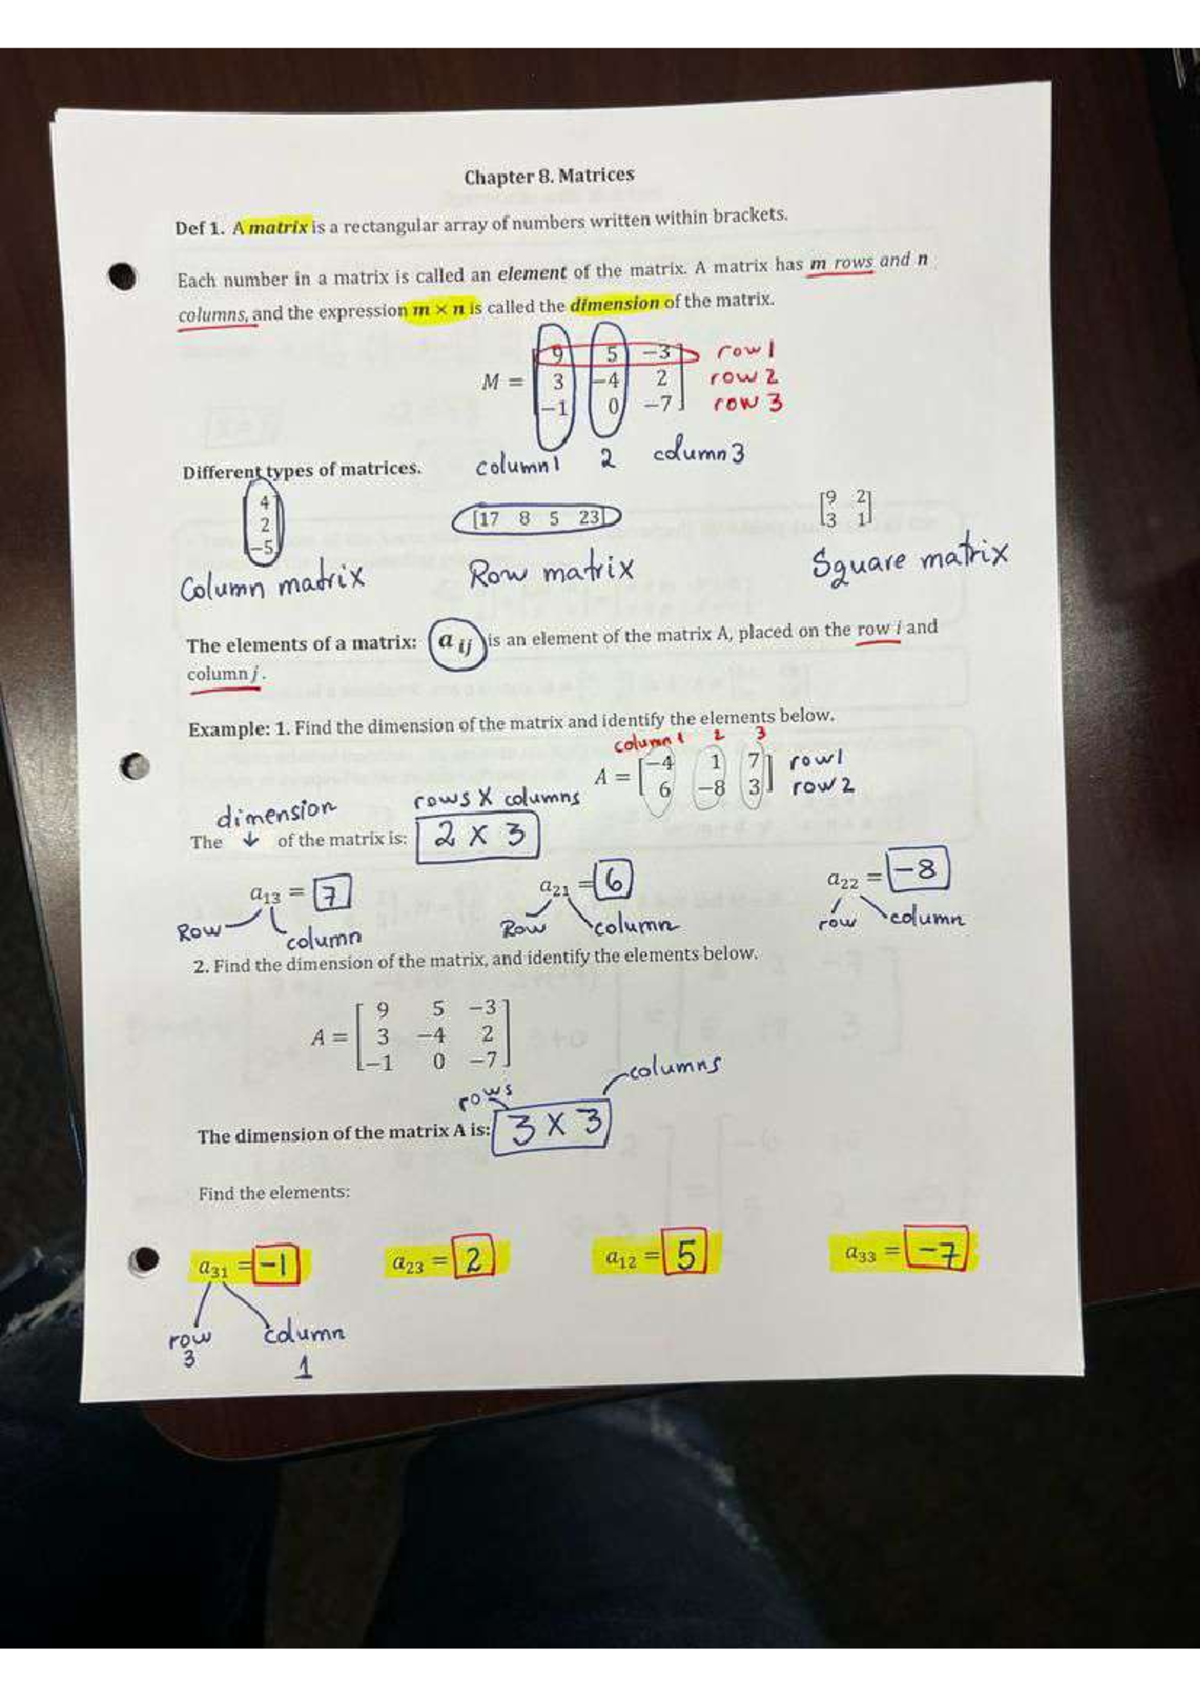 Chapter 8. Matrices
Def 1. A matrix is a rectangular array of numbers written within brackets.
Each number in a matrix is called an element of the matrix. A matrix has m rows and n
columns, and the expression m × n is called the dimension of the matrix.
9 5 −3 row 1
M = 3 −4 2 row 2
−1 0 −7 row 3
column 1 2 column 3
Different types of matrices.
4
2
−5
[17 8 5 23]
[9 2]
[3 1]
Column matrix Row matrix Square matrix
The elements of a matrix: a ij is an element of the matrix A, placed on the row i and
column j.
Example: 1. Find the dimension of the matrix and identify the elements below.
column 1 2 3
A = [−4 1 7] row 1
[6 −8 3] row 2
dimension rows X columns
The ↓ of the matrix is: 2 X 3
a13 = 7 a21 = 6 a22 = −8
Row column Row column row column
2. Find the dimension of the matrix, and identify the elements below.
9 5 −3
A = 3 −4 2
−1 0 −7
rows columns
The dimension of the matrix A is: 3 X 3
Find the elements:
a31 = −1 a23 = 2 a12 = 5 a33 = −7
row column
3 1